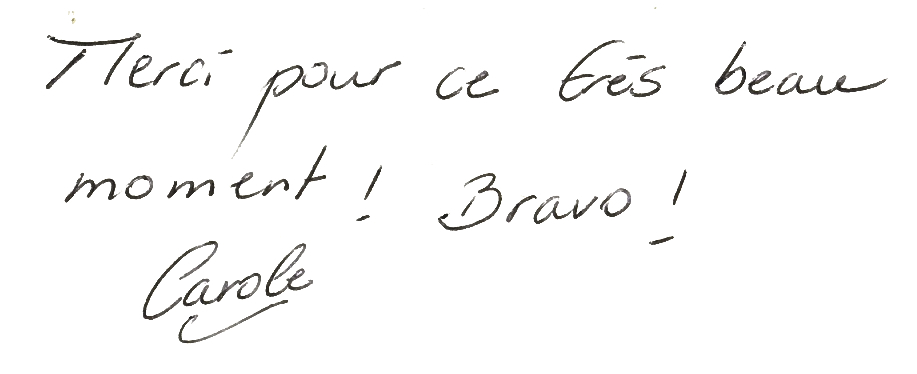 Merci pour ce très beau
moment ! Bravo !
Carole